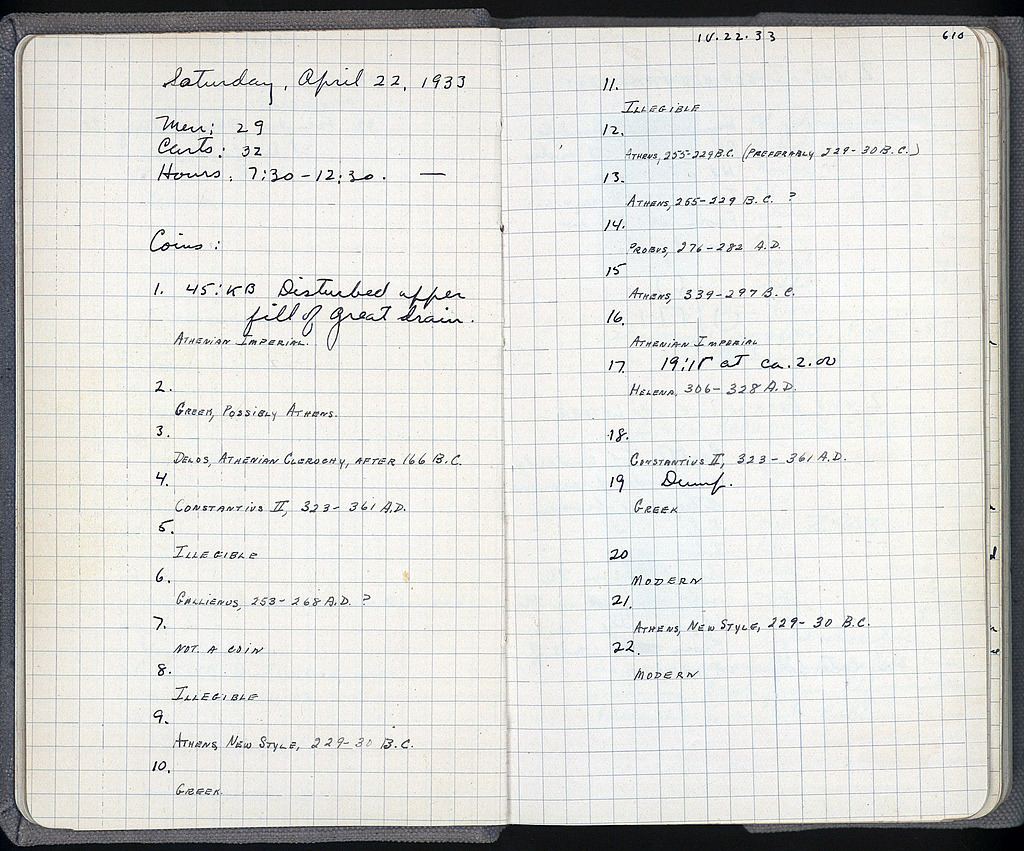 Saturday, April 22, 1933
Men: 29
Carts: 32
Hours: 7:30-12:30. —
Coins:
1. 45:KB Disturbed upper
fill of great drain.
ATHENIAN IMPERIAL.
2.
GREEK, POSSIBLY ATHENS.
3.
DELOS, ATHENIAN CLEROCHY, AFTER 166 B.C.
4.
CONSTANTIUS II, 323-361 A.D.
5.
ILLEGIBLE
6.
GALLIENUS, 253-268 A.D. ?
7.
NOT A COIN
8.
ILLEGIBLE
9.
ATHENS, NEW STYLE, 229-30 B.C.
10.
GREEK.
IV.22.33
610
11.
ILLEGIBLE
12.
ATHENS, 255-229 B.C. (PREFERABLY 229-30 B.C.)
13.
ATHENS, 255-229 B.C. ?
14.
PROBUS, 276-282 A.D.
15
ATHENS, 339-297 B.C.
16.
ATHENIAN IMPERIAL
17 at ca. 2.00
HELENA, 306-328 A.D.
18.
CONSTANTIUS II, 323-361 A.D.
19 Dump.
GREEK
20
MODERN
21.
ATHENS, NEW STYLE, 229-30 B.C.
22.
MODERN